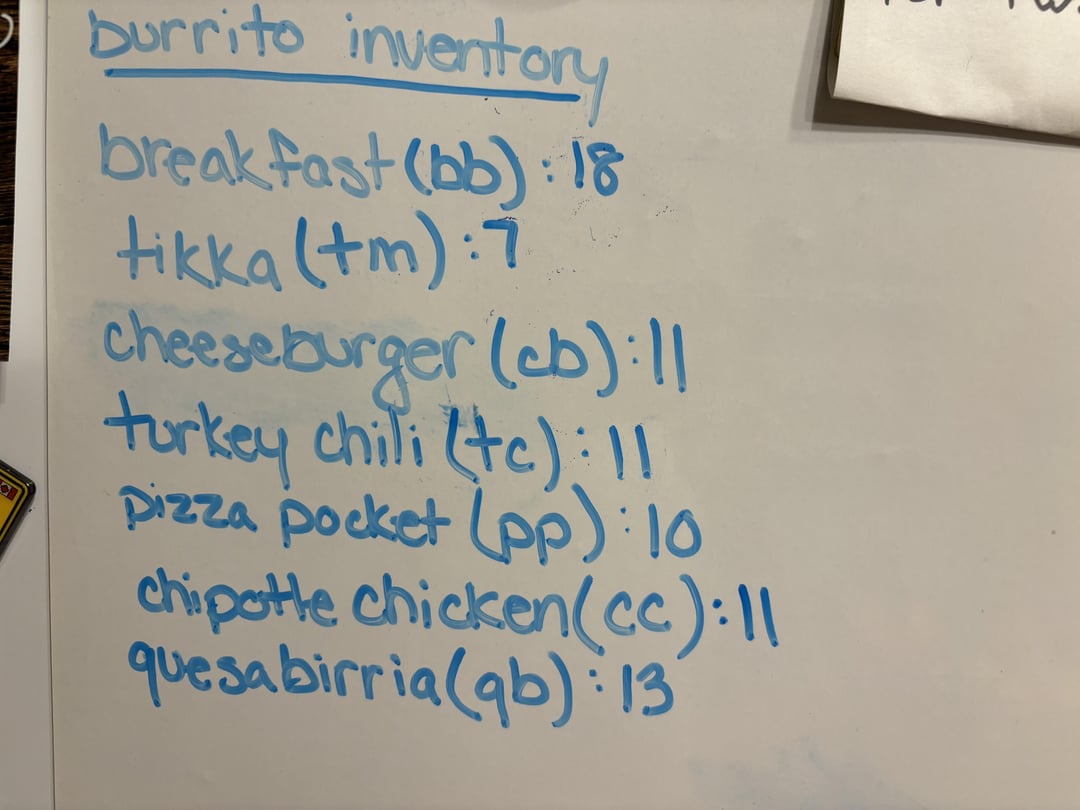 burrito inventory
breakfast (bb) : 18
tikka (tm) : 7
cheeseburger (cb) : 11
turkey chili (tc) : 11
pizza pocket (pp) : 10
chipotle chicken (cc) : 11
quesabirria (qb) : 13